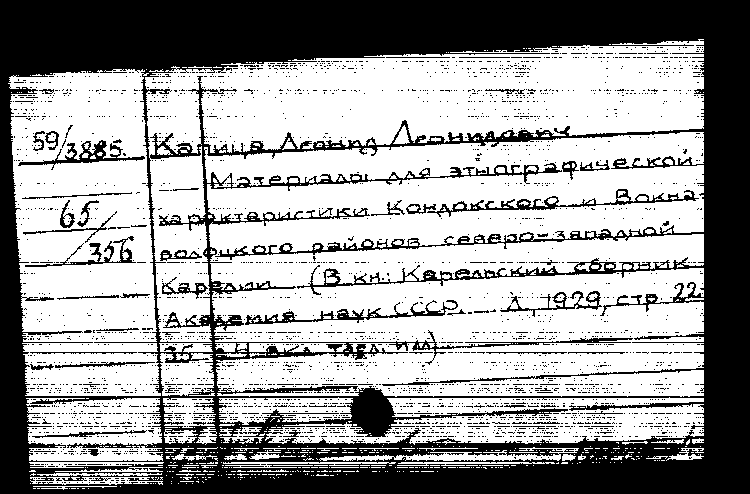 59/3885. Капица, Леонид Леонидович
Материалы для этнографической
65/356 характеристики Кондокского и Вокна-
волоцкого районов северо-западной
Карелии (В кн.: Карельский сборник
Академия наук СССР. Л, 1929, стр 22-
35 4 вкл. табл. илл)